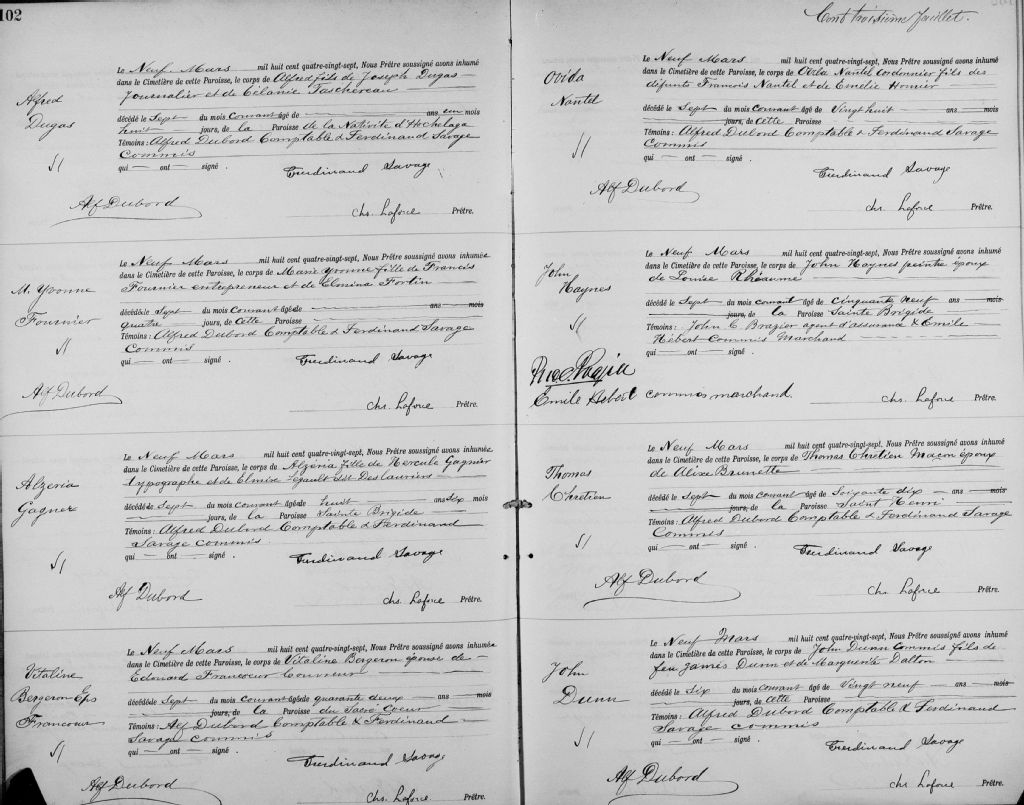 102
Alfred
Dugas
Le Neuf Mars mil huit cent quatre-vingt-sept, Nous Prêtre soussigné avons inhumé
dans le Cimetière de cette Paroisse, le corps de Alfred fils de Joseph Dugas
Journalier et de Célanie Taschereau
décédé le Sept du mois Courant âgé de ans un mois
huit jours, de la Paroisse de la Nativité d'Hochelaga
Témoins : Alfred Dubord Comptable & Ferdinand Savage
Commis
qui ont signé.
Ferdinand Savage
Alf Dubord
Chs. Laforce Prêtre.
M. Yvonne
Fournier
Le Neuf Mars mil huit cent quatre-vingt-sept, Nous Prêtre soussigné avons inhumée
dans le Cimetière de cette Paroisse, le corps de Marie Yvonne fille de Francis
Fournier entrepreneur et de Elmina Fortin
décédé le Sept du mois Courant âgée de ans mois
quatre jours, de Cette Paroisse
Témoins : Alfred Dubord Comptable & Ferdinand Savage
Commis
qui ont signé.
Ferdinand Savage
Alf Dubord
Chs. Laforce Prêtre.
Alzeria
Gagner
Le Neuf Mars mil huit cent quatre-vingt-sept, Nous Prêtre soussigné avons inhumée
dans le Cimetière de cette Paroisse, le corps de Alzeria fille de Hercule Gagnier
typographe et de Elmire Legault dit Deslauriers
décédé le Sept du mois Courant âgée de huit ans Six mois
jours, de la Paroisse Sainte Brigide
Témoins : Alfred Dubord Comptable & Ferdinand
Savage Commis
qui ont signé.
Ferdinand Savage
Alf Dubord
Chs. Laforce Prêtre.
Vitaline
Bergeron Eps
Francoeur
Le Neuf Mars mil huit cent quatre-vingt-sept, Nous Prêtre soussigné avons inhumée
dans le Cimetière de cette Paroisse, le corps de Vitaline Bergeron épouse de
Edouard Francoeur Couvreur
décédée le Sept du mois Courant âgée de quarante deux ans mois
jours, de la Paroisse du Sacré Coeur
Témoins : Alf Dubord Comptable & Ferdinand
Savage Commis
qui ont signé.
Ferdinand Savage
Alf Dubord
Chs. Laforce Prêtre.
Cent troisième feuillet.
Ovida
Nantel
Le Neuf Mars mil huit cent quatre-vingt-sept, Nous Prêtre soussigné avons inhumé
dans le Cimetière de cette Paroisse, le corps de Ovida Nantel Cordonnier fils des
défunts Francois Nantel et de Emélie Homier
décédé le Sept du mois Courant âgé de Vingt huit ans mois
jours, de Cette Paroisse
Témoins : Alfred Dubord Comptable & Ferdinand Savage
Commis
qui ont signé.
Ferdinand Savage
Alf Dubord
Chs. Laforce Prêtre.
John
Haynes
Le Neuf Mars mil huit cent quatre-vingt-sept, Nous Prêtre soussigné avons inhumé
dans le Cimetière de cette Paroisse, le corps de John Haynes peintre époux
de Louise Rhéaume
décédé le Sept du mois courant âgé de Cinquante neuf ans mois
jours, de la Paroisse Sainte Brigide
Témoins : John C. Brazier agent d'assurance & Emile
Hébert Commis Marchand
qui ont signé.
Emile Hebert commis marchand.
Chs. Laforce Prêtre.
Thomas
Chretien
Le Neuf Mars mil huit cent quatre-vingt-sept, Nous Prêtre soussigné avons inhumé
dans le Cimetière de cette Paroisse, le corps de Thomas Chretien Maçon époux
de Alixe Brunette
décédé le Sept du mois Courant âgé de Soixante dix ans mois
jours, de la Paroisse Saint Henri
Témoins : Alfred Dubord Comptable & Ferdinand Savage
Commis
qui ont signé.
Ferdinand Savage
Alf Dubord
Chs. Laforce Prêtre.
John
Dunn
Le Neuf Mars mil huit cent quatre-vingt-sept, Nous Prêtre soussigné avons inhumé
dans le Cimetière de cette Paroisse, le corps de John Dunn Commis fils de
feu James Dunn et de Marguerite Dalton
décédé le Six du mois Courant âgé de Vingt neuf ans mois
jours, de Cette Paroisse
Témoins : Alfred Dubord Comptable & Ferdinand
Savage commis
qui ont signé.
Ferdinand Savage
Alf Dubord
Chs. Laforce Prêtre.